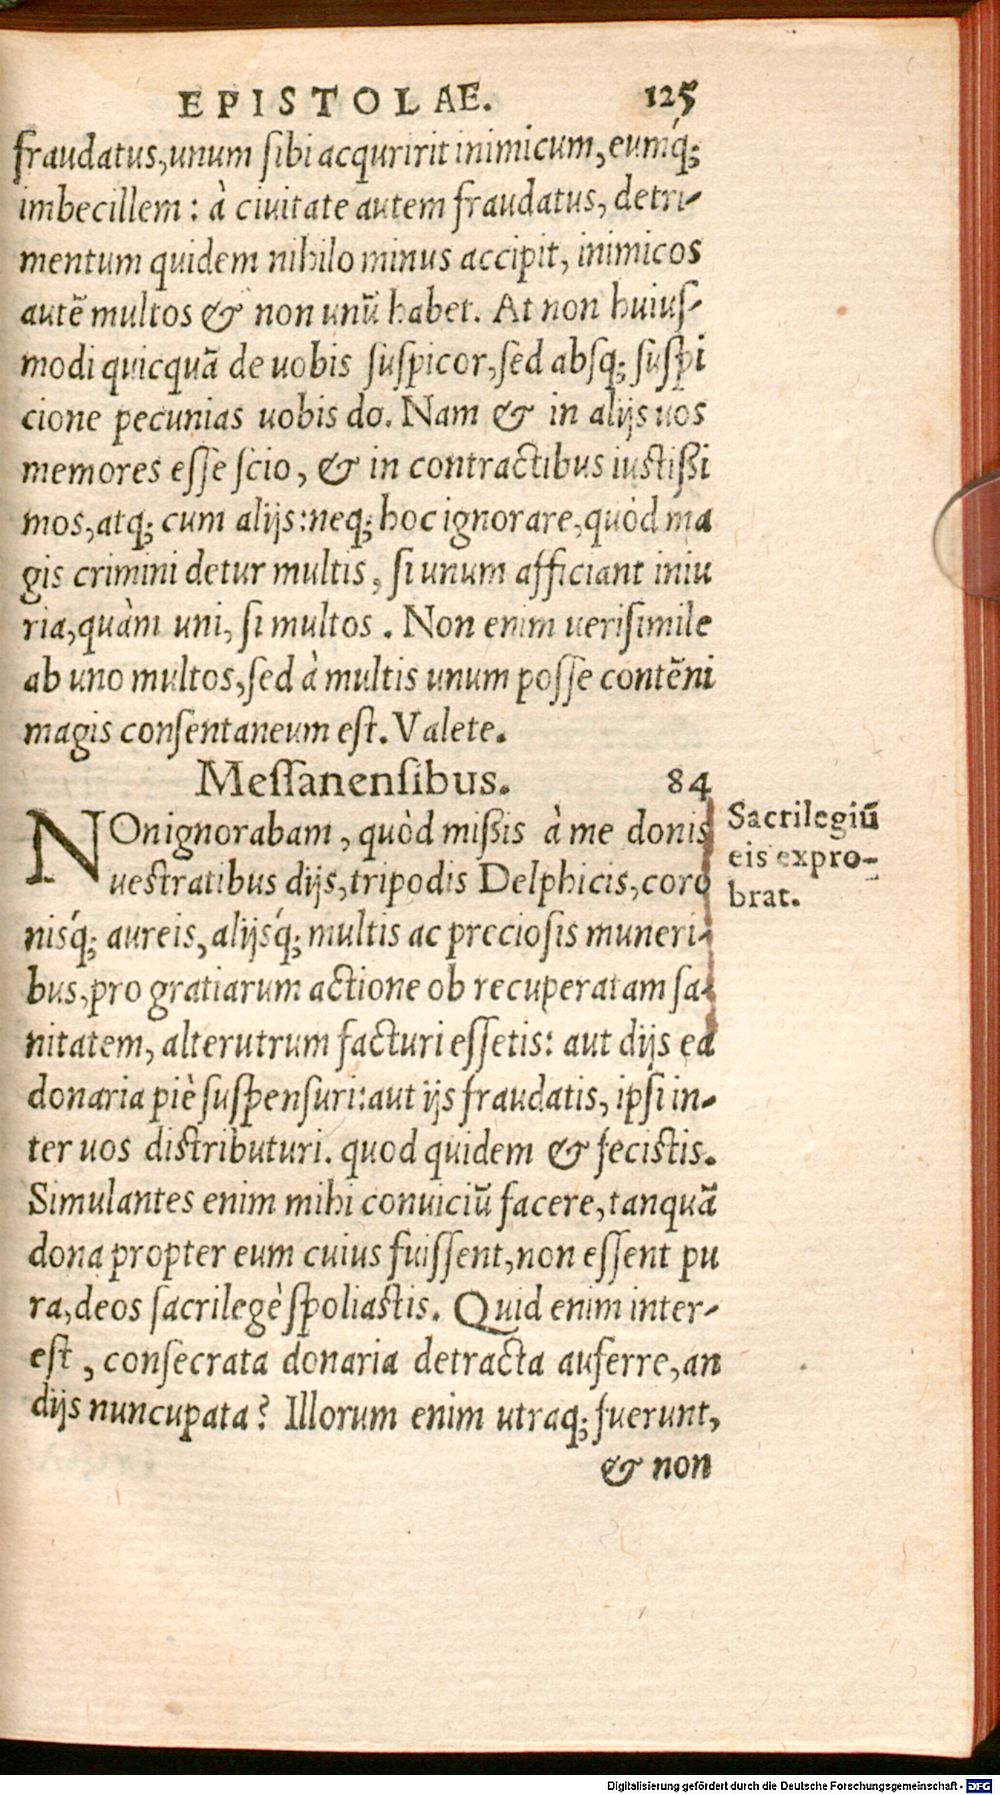 EPISTOLAE. 125
fraudatus, unum ſibi acquririt inimicum, eumq́;
imbecillem: à ciuitate autem fraudatus, detri-
mentum quidem nihilo minus accipit, inimicos
autē multos & non unū habet. At non huiuſ-
modi quicquā de uobis ſuſpicor, ſed abſq; ſuſpi
cione pecunias uobis do. Nam & in alijs uos
memores eſſe ſcio, & in contractibus iuſtißi
mos, atq; cum alijs: neq; hoc ignorare, quòd ma
gis crimini detur multis, ſi unum afficiant iniu
ria, quàm uni, ſi multos. Non enim ueriſimile
ab uno multos, ſed à multis unum poſſe contēni
magis conſentaneum eſt. Valete.
Meſſanenſibus. 84
NOn ignorabam, quòd mißis à me donis
ueſtratibus dijs, tripodis Delphicis, coro
nisq́; aureis, alijsq́; multis ac precioſis muneri-
bus, pro gratiarum actione ob recuperatam ſa-
nitatem, alterutrum facturi eſſetis: aut dijs ea
donaria piè ſuſpenſuri: aut ijs fraudatis, ipſi in-
ter uos diſtributuri. quod quidem & feciſtis.
Simulantes enim mihi conuiciū facere, tanquā
dona propter eum cuius fuiſſent, non eſſent pu
ra, deos ſacrilegè ſpoliaſtis. Quid enim inter-
eſt, conſecrata donaria detracta auferre, an
dijs nuncupata? Illorum enim utraq; fuerunt,
& non
Sacrilegiū
eis expro-
brat.
Digitalisierung gefördert durch die Deutsche Forschungsgemeinschaft - DFG